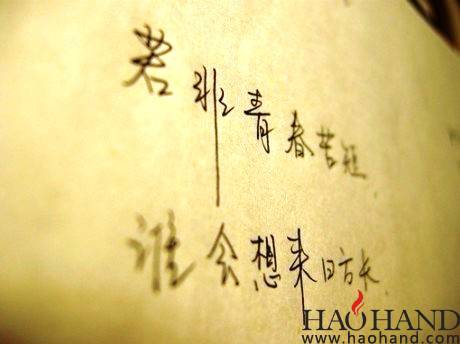 若非青春苦短
谁会想来日方长
HAOHAND
www.haohand.com